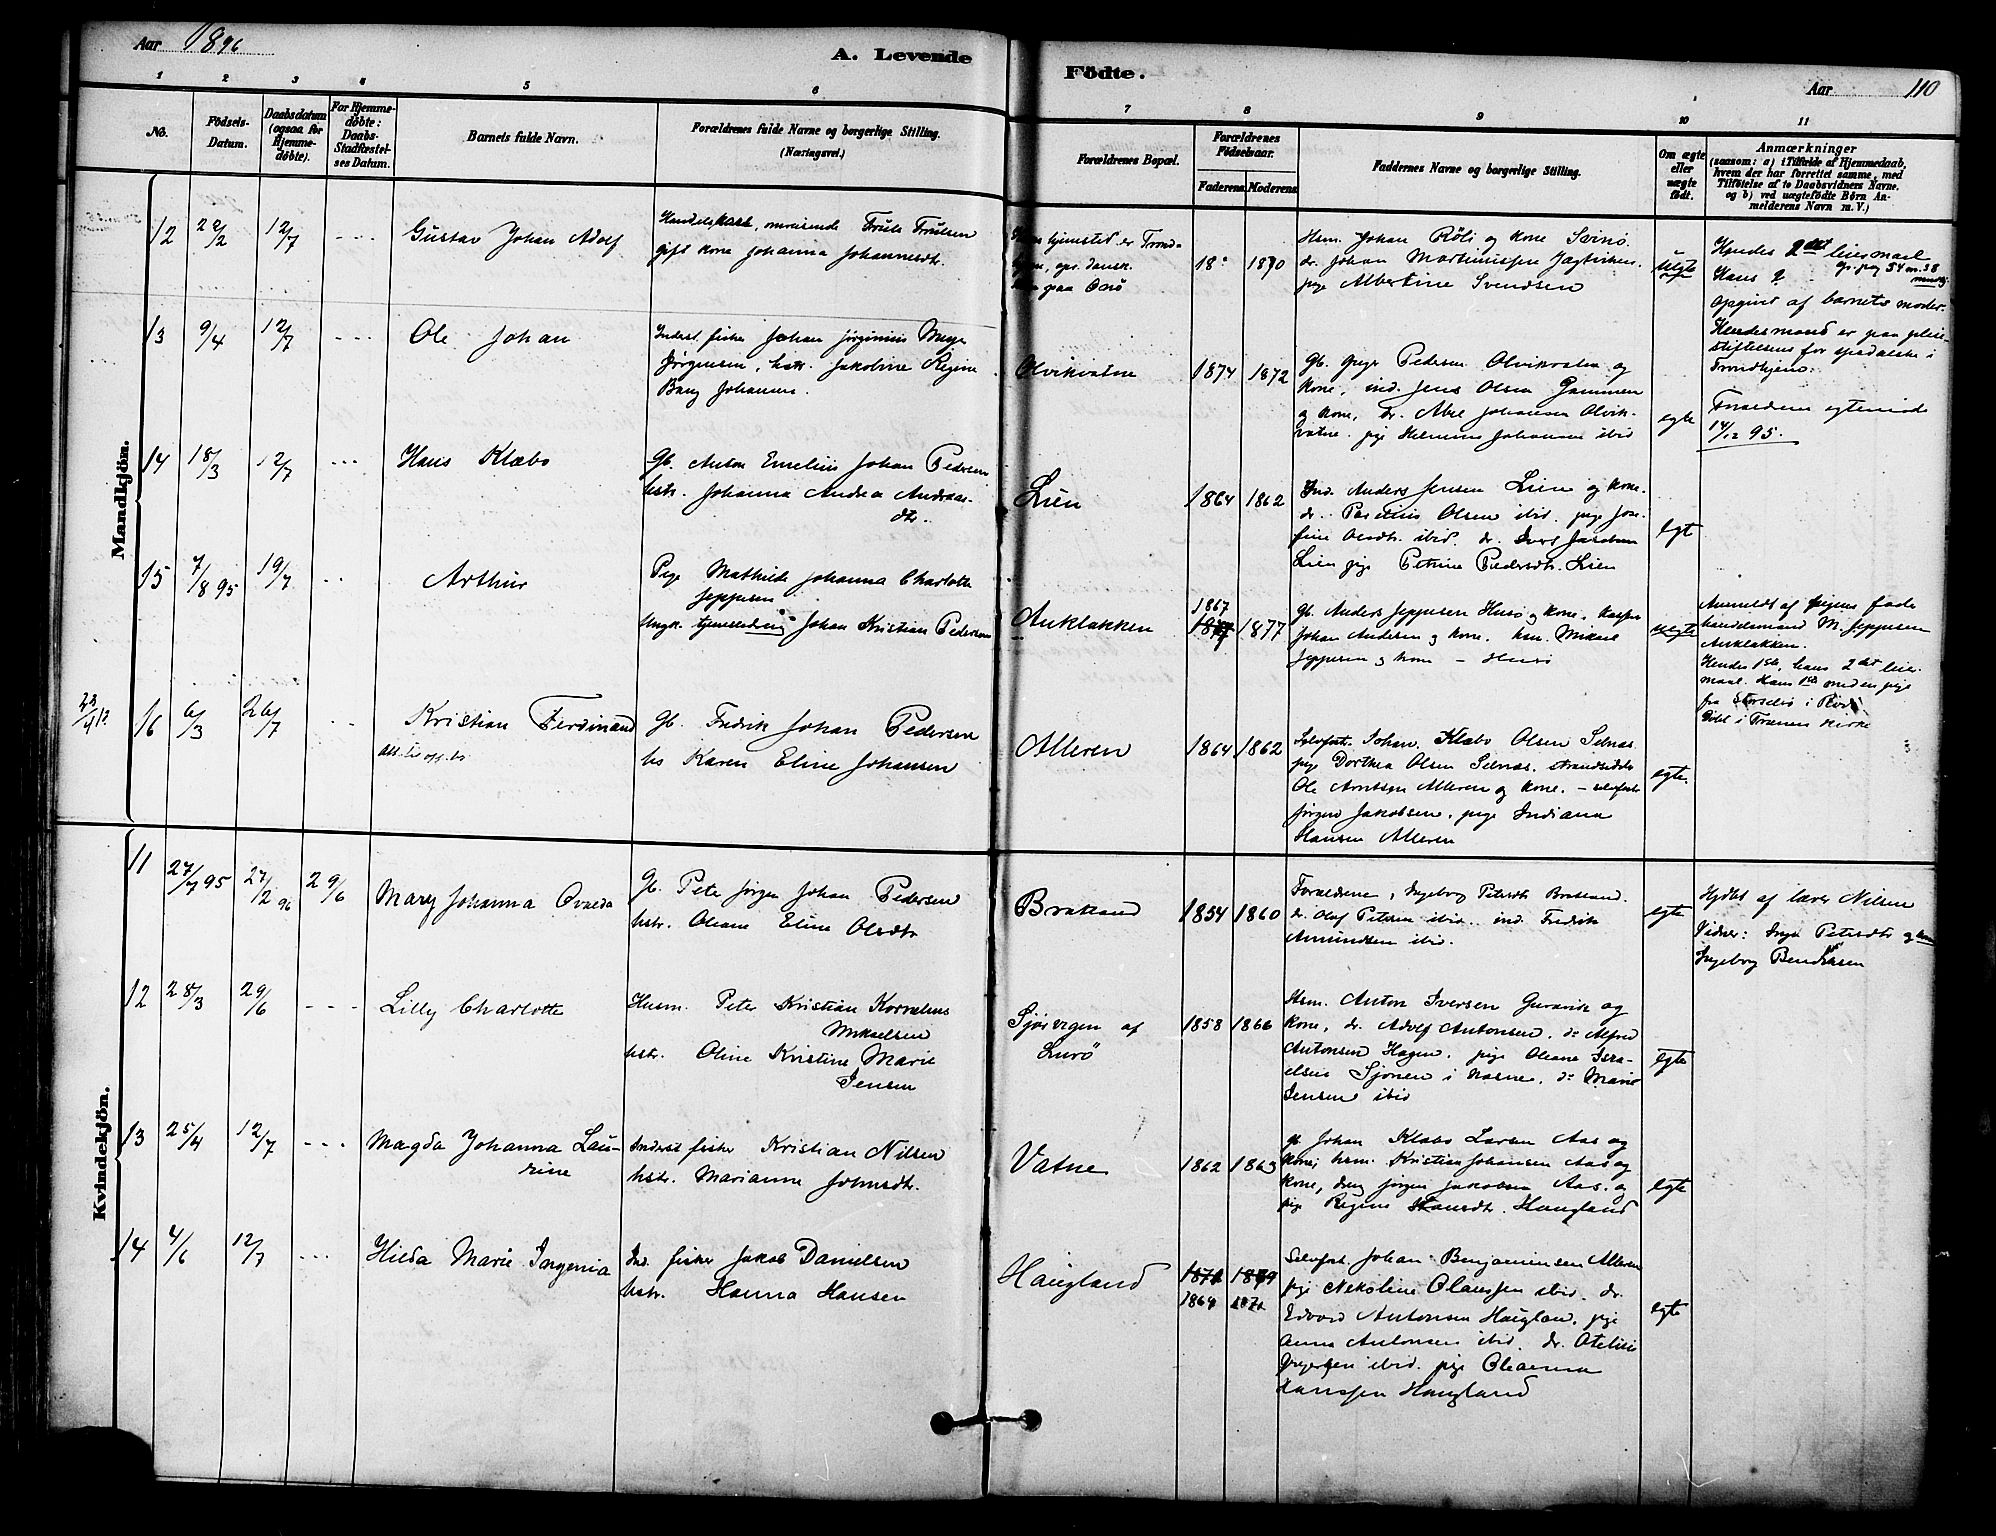 Aar 1896
A. Levende
Födte.
Aar 110
1 2 3 4 5 6 7 8 9 10 11
No.
Födsels-
Datum.
Daabsdatum
(ogsaa for
Hjemme-
döbte).
For Hjemme-
döbte:
Daabs-
Stadfæstel-
ses Datum.
Barnets fulde Navn.
Forældrenes fulde Navne og borgerlige Stilling.
(Næringsvei.)
Forældrenes Bopæl.
Forældrenes
Födselsaar.
Faderens. Moderens.
Faddernes Navne og borgerlige Stilling.
Om ægte
eller
uægte
födt.
Anmærkninger
(saasom: a) i Tilfælde af Hjemmedaab,
hvem der har forrettet samme, med
Tilföielse af to Daabsvidners Navne.
og b) ved uægtefödte Börn An-
melderens Navn m. V.)
Mandkjön.
12 22/2 12/7 - - -
Gustav Johan Adolf
omreisende Truls Trulsen
gift kone Johanna Johannesdtr.
tjenested er Trond-
dansk
paa Onö
18 1870
Hsm. Johan Röli og kone Svinö.
dr. Johan Martinussen
pige Albertine Svendsen
uegte
Hendes 2det leiermaal
Hans ?
opgivet af barnets moder.
Hendes mand er paa pleie-
stiftelsen for spedalske i
Trondhjem.
13 9/4 12/7 - - -
Ole Johan
Inderst. fisker Johan Jörginius Meyer
Jörgensen, hstr. Jakobine Regine
Bang Johansen.
Olvikvatne
1874 1872
Gb. Pedersen Olvikvatn og
kone, ind. Jens Olsen Gammen
og kone, dr. Abel Johansen Olvik-
vatne. pige Helmine Johansen ibid
egte
Forældrene egteviede
14/12 95.
14 18/3 12/7 - - -
Hans Klæbo
Gb. Anton Emelius Johan Pedersen
hstr. Johanna Andrea Andreas-
dtr.
Lien
1864 1862
Ind. Anders Jensen Lien og kone.
dr. Olsen ibid. pige Jose-
fine Olsdtr. ibid. dr. Jakobsen
Lien pige Petrine Pedersdtr. Lien
egt
15 7/8 95 19/7 - -
Arthur
Pige Mathilde Johanna Charlotte
Jeppesen
Ungk. Johan Kristian Pedersen
Auklakken
1867
1877 1877
gb. Anders Jeppesen Husö og kone.
Johan Andersen og kone. hsm. Mikael
Jeppesen og kone - Husö
uegte
Anmeldt af pigens fader
handelsmand M. Jeppesen
Auklakken.
Hendes 1ste, hans 2det leier-
maal. Hans 1ste med en pige
fra Storselö i Rödö
Döbt i Trænen kirke
16 6/3 26/7 - -
Kristian Ferdinand
Gb. Fredrik Johan Pedersen
hs Karen Eline Johansen
Alleren
1864 1862
Selvfost. Johan Klæbo Olsen Selnæs
pige Dorthea Olsen Selnæs. strandsidder
Ole Arntsen Alleren og kone. - selvfost
Jörgen Jakobsen, pige Indiana
Hansen Alleren
egte.
Kvindekjön.
11 27/7 95 27/2 96 29/6
Mary Johanna Ovalda
Gb. Peter Jörgen Johan Pedersen
hstr. Oliane Eline Olsdtr
Bratland
1854 1860
Forældrene, Ingeborg Petersdtr Bratland.
dr. Olaf Petersen ibid. ind. Fredrik
Amundsen ibid.
egte
Hjdbt af lærer Nilsen
Vidner: Inga Petersdtr og kone
Ingeborg Bendiksen
12 28/3 29/6 - - -
Lilly Charlotte
Husm. Peter Kristian Kornelius
Mikaelsen
hstr. Oline Kristine Marie
Jensen
Sjövegen af
Lurö
1858 1866
Hsm. Anton Iversen Guravik og
kone, dr. Adolf Antonsen, do Alfred
Antonsen Hagen, pige Oleane Isra-
elsen Sjonen i Næsne. do Marie
Jensen ibid
egte
13 25/4 12/7 - - -
Magda Johanna Lau-
rine
Inderst fisker Kristian Nilsen
hstr. Marianne Johnsdtr.
Vatne
1862 1863
gb. Johan Klæbo Larsen Aas og
kone, hsm. Kristian Johansen Aas og
kone, dreng Jörgen Jakobsen Aas. og
pige Regine Hansdtr. Haugland
egte
14 4/6 12/7 - - -
Hilda Marie Ingenia
Ind. fisker Jakob Danielsen
hstr. Hanna Hansen
Haugland
1871 1879
1864 1871
Selvfost Johan Benjaminsen Alleren
pige Nekoline Olaussen ibid. dr.
Edvard Antonsen Hauglan. pige
Anna Antonsen ibid. dr.
ibid. pige Oleanna
Hanssen Haugland
egte